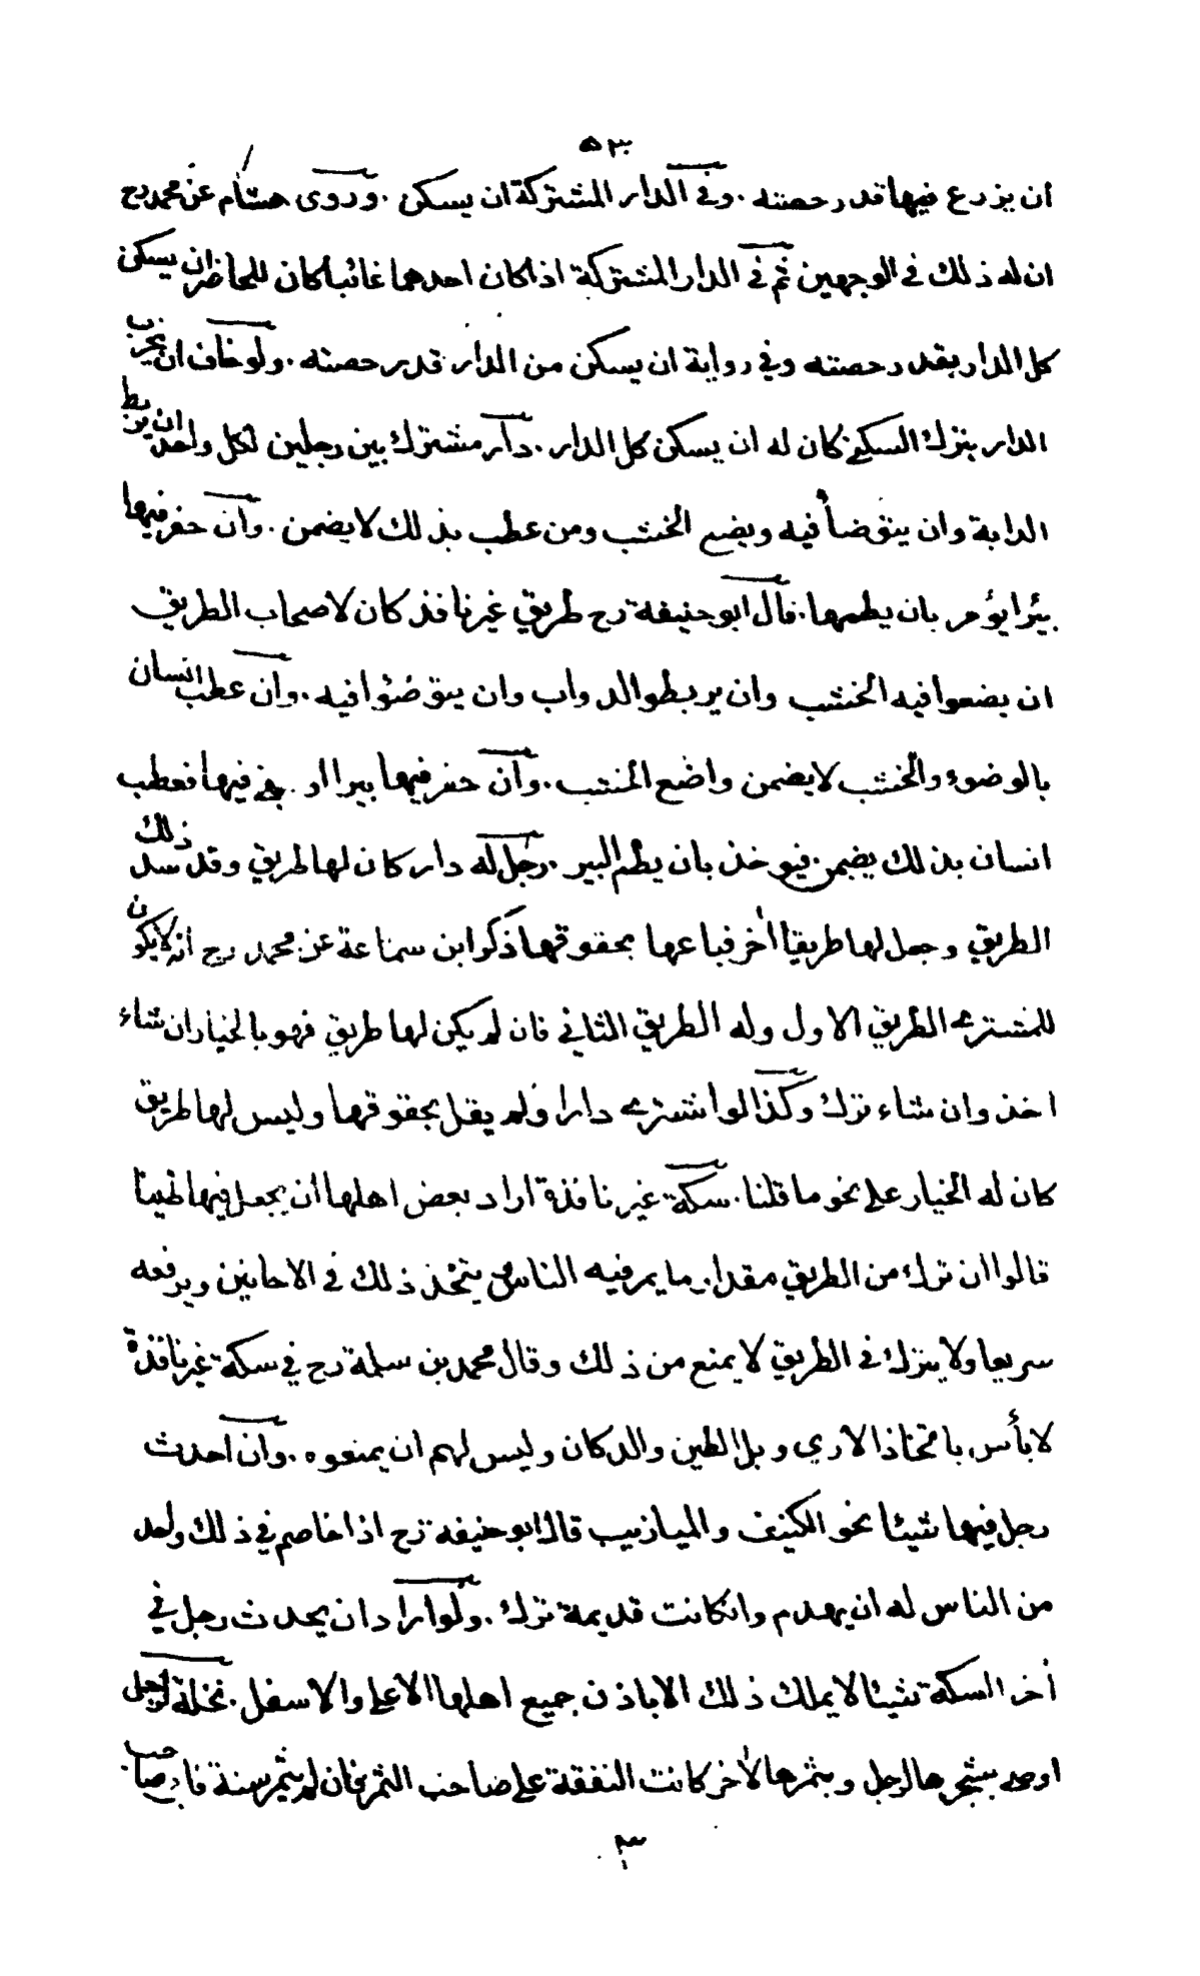 ٥٣
ان يزرع فيها قدر حصته . وفي الدار المشتركة ان يسكن . وروى هشام عن محمد رح
ان له ذلك في الوجهين ثم في الدار المشتركة اذا كان احدهما غائبا كان للحاضر ان يسكن
كل الدار بقدر حصته وفي رواية ان يسكن من الدار قدر حصته . ولو خاف ان يخرب
الدار بترك السكنى كان له ان يسكن كل الدار . دار مشترك بين رجلين لكل واحد ان يربط
الدابة وان يتوضأ فيه ويضع الخشب ومن عطب بذلك لا يضمن . وان حفر فيها
بيرا يؤمر بان يطمها . قال ابو حنيفة رح طريق غير نافذ كان لاصحاب الطريق
ان يضعوا فيه الخشب وان يربطوا الدواب وان يتوضئوا فيه . وان عطب انسان
بالوضوء والخشب لا يضمن واضع الخشب . وان حفر فيها بيرا او فيها فعطب
انسان بذلك يضمن . فيوخذ بان يطم البير . رجل له دار كان لها طريق وقد سد ذلك
الطريق وجعل لها طريقا أخر فباعها بحقوقها ذكر ابن سماعة عن محمد رح انه لا يكون
للمشتري الطريق الاول وله الطريق الثاني فان لم يكن لها طريق فهو بالخيار ان شاء
اخذ وان شاء ترك وكذا لو اشترى دارا ولم يقل بحقوقها وليس لها طريق
كان له الخيار على نحو ما قلنا . سكة غير نافذة اراد بعض اهلها ان يجعل فيها طينا
قالوا ان ترك من الطريق مقدار ما يمر فيه الناس يتخذ ذلك في الاحايين ويرفعه
سريعا ولا يترك في الطريق لا يمنع من ذلك وقال محمد بن سلمة رح في سكة غير نافذة
لا بأس باتخاذ الاري وبل الطين والدكان وليس لهم ان يمنعوه . وان احدث
رجل فيها شيئا نحو الكنيف والميازيب قال ابو حنيفة رح اذا خاصم في ذلك واحد
من الناس له ان يهدم وان كانت قديمة ترك . ولو اراد ان يحدث رجل في
أخر السكة شيئا لا يملك ذلك الا باذن جميع اهلها الاعلى والاسفل . نخلة لرجل
اوصى بشجرها لرجل وبثمرها لأخر كانت النفقة على صاحب الثمر فان لم يثمر سنة فابى صاحب
٣